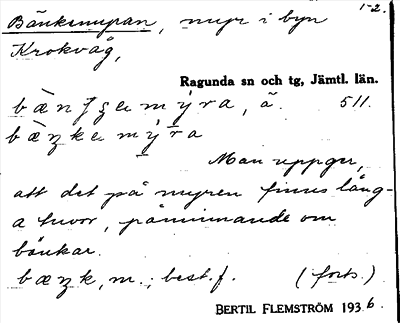 Bänkmyran, myr i byn 1-2.
Krokvåg,
Ragunda sn och tg, Jämtl. län.
, ä. 511.
Man uppger,
att det på myren finns lång-
a tuvor, påminnande om
bänkar.
m.; best. f. (forts.)
BERTIL FLEMSTRÖM 1936.